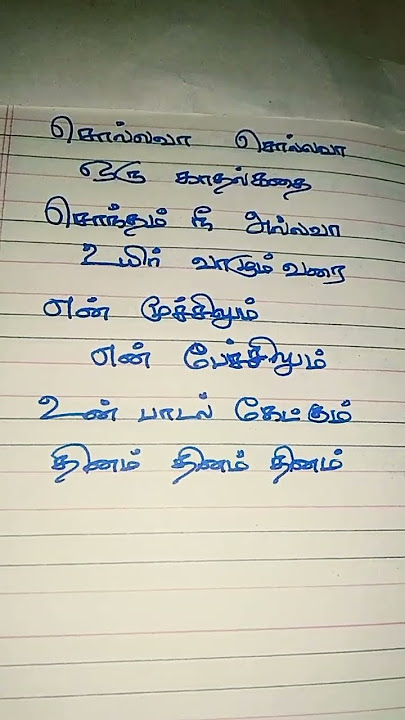 சொல்லவா சொல்லவா
ஒரு காதல்கதை
சொந்தம் நீ அல்லவா
உயிர் வாழும் வரை
என் மூச்சிலும்
என் பேச்சிலும்
உன் பாடல் கேட்கும்
தினம் தினம் தினம்